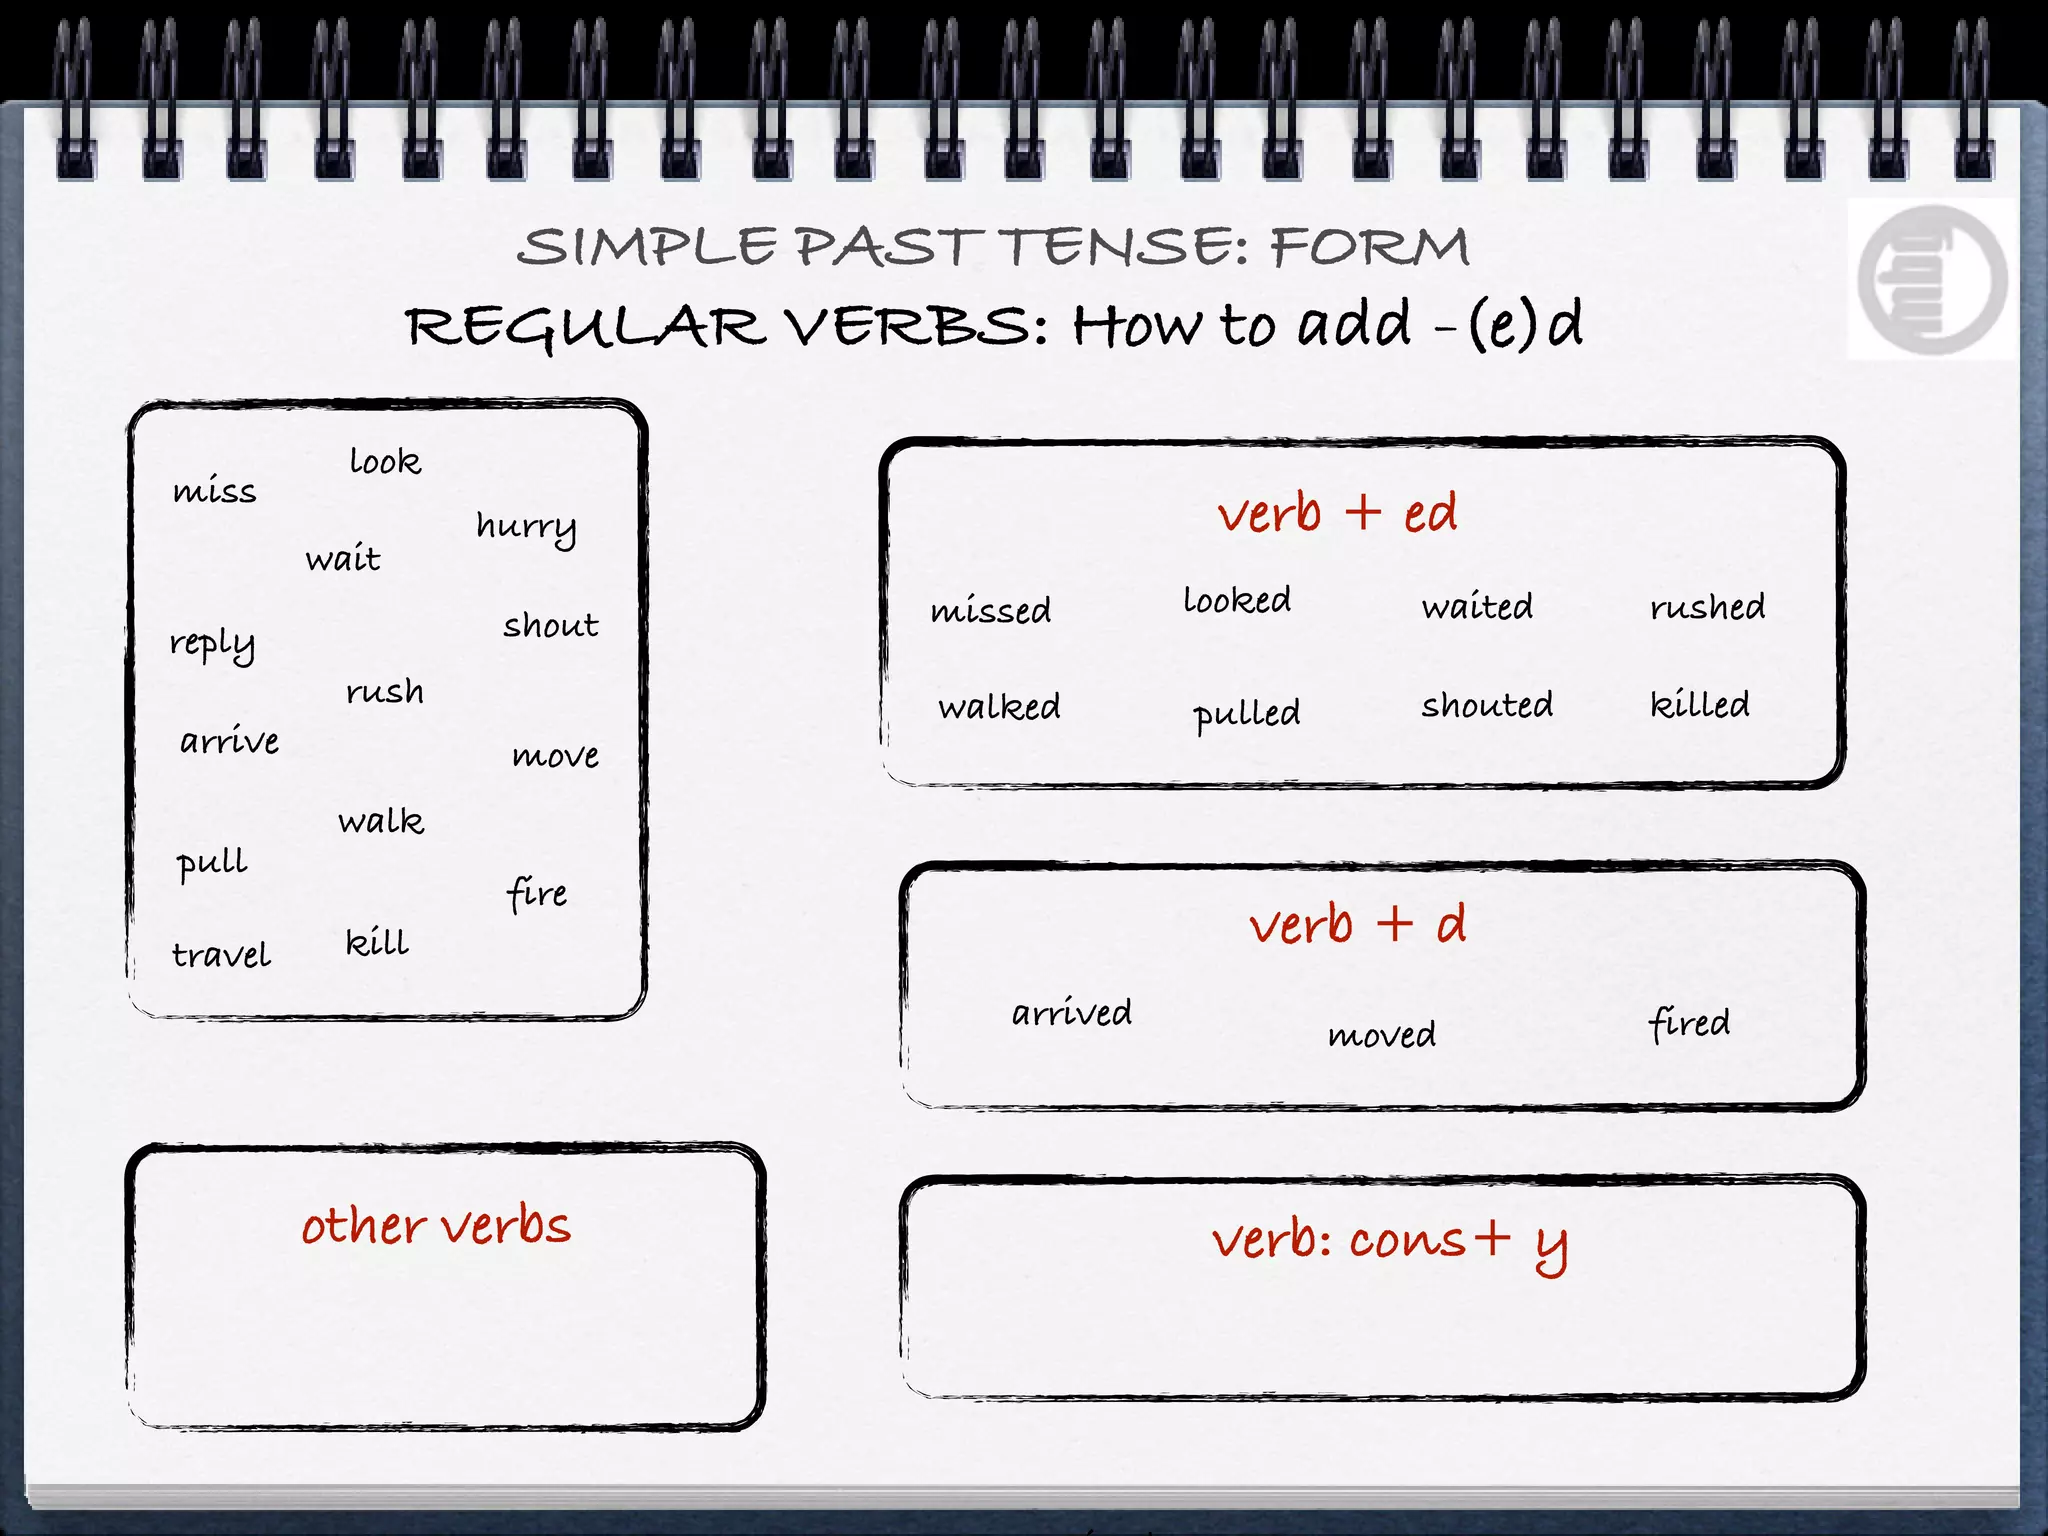 SIMPLE PAST TENSE: FORM
REGULAR VERBS: How to add -(e)d
look
miss
hurry
wait
shout
reply
rush
arrive
move
walk
pull
fire
kill
travel
verb + ed
missed looked waited rushed
walked pulled shouted killed
verb + d
arrived moved fired
other verbs
verb: cons+ y
mby